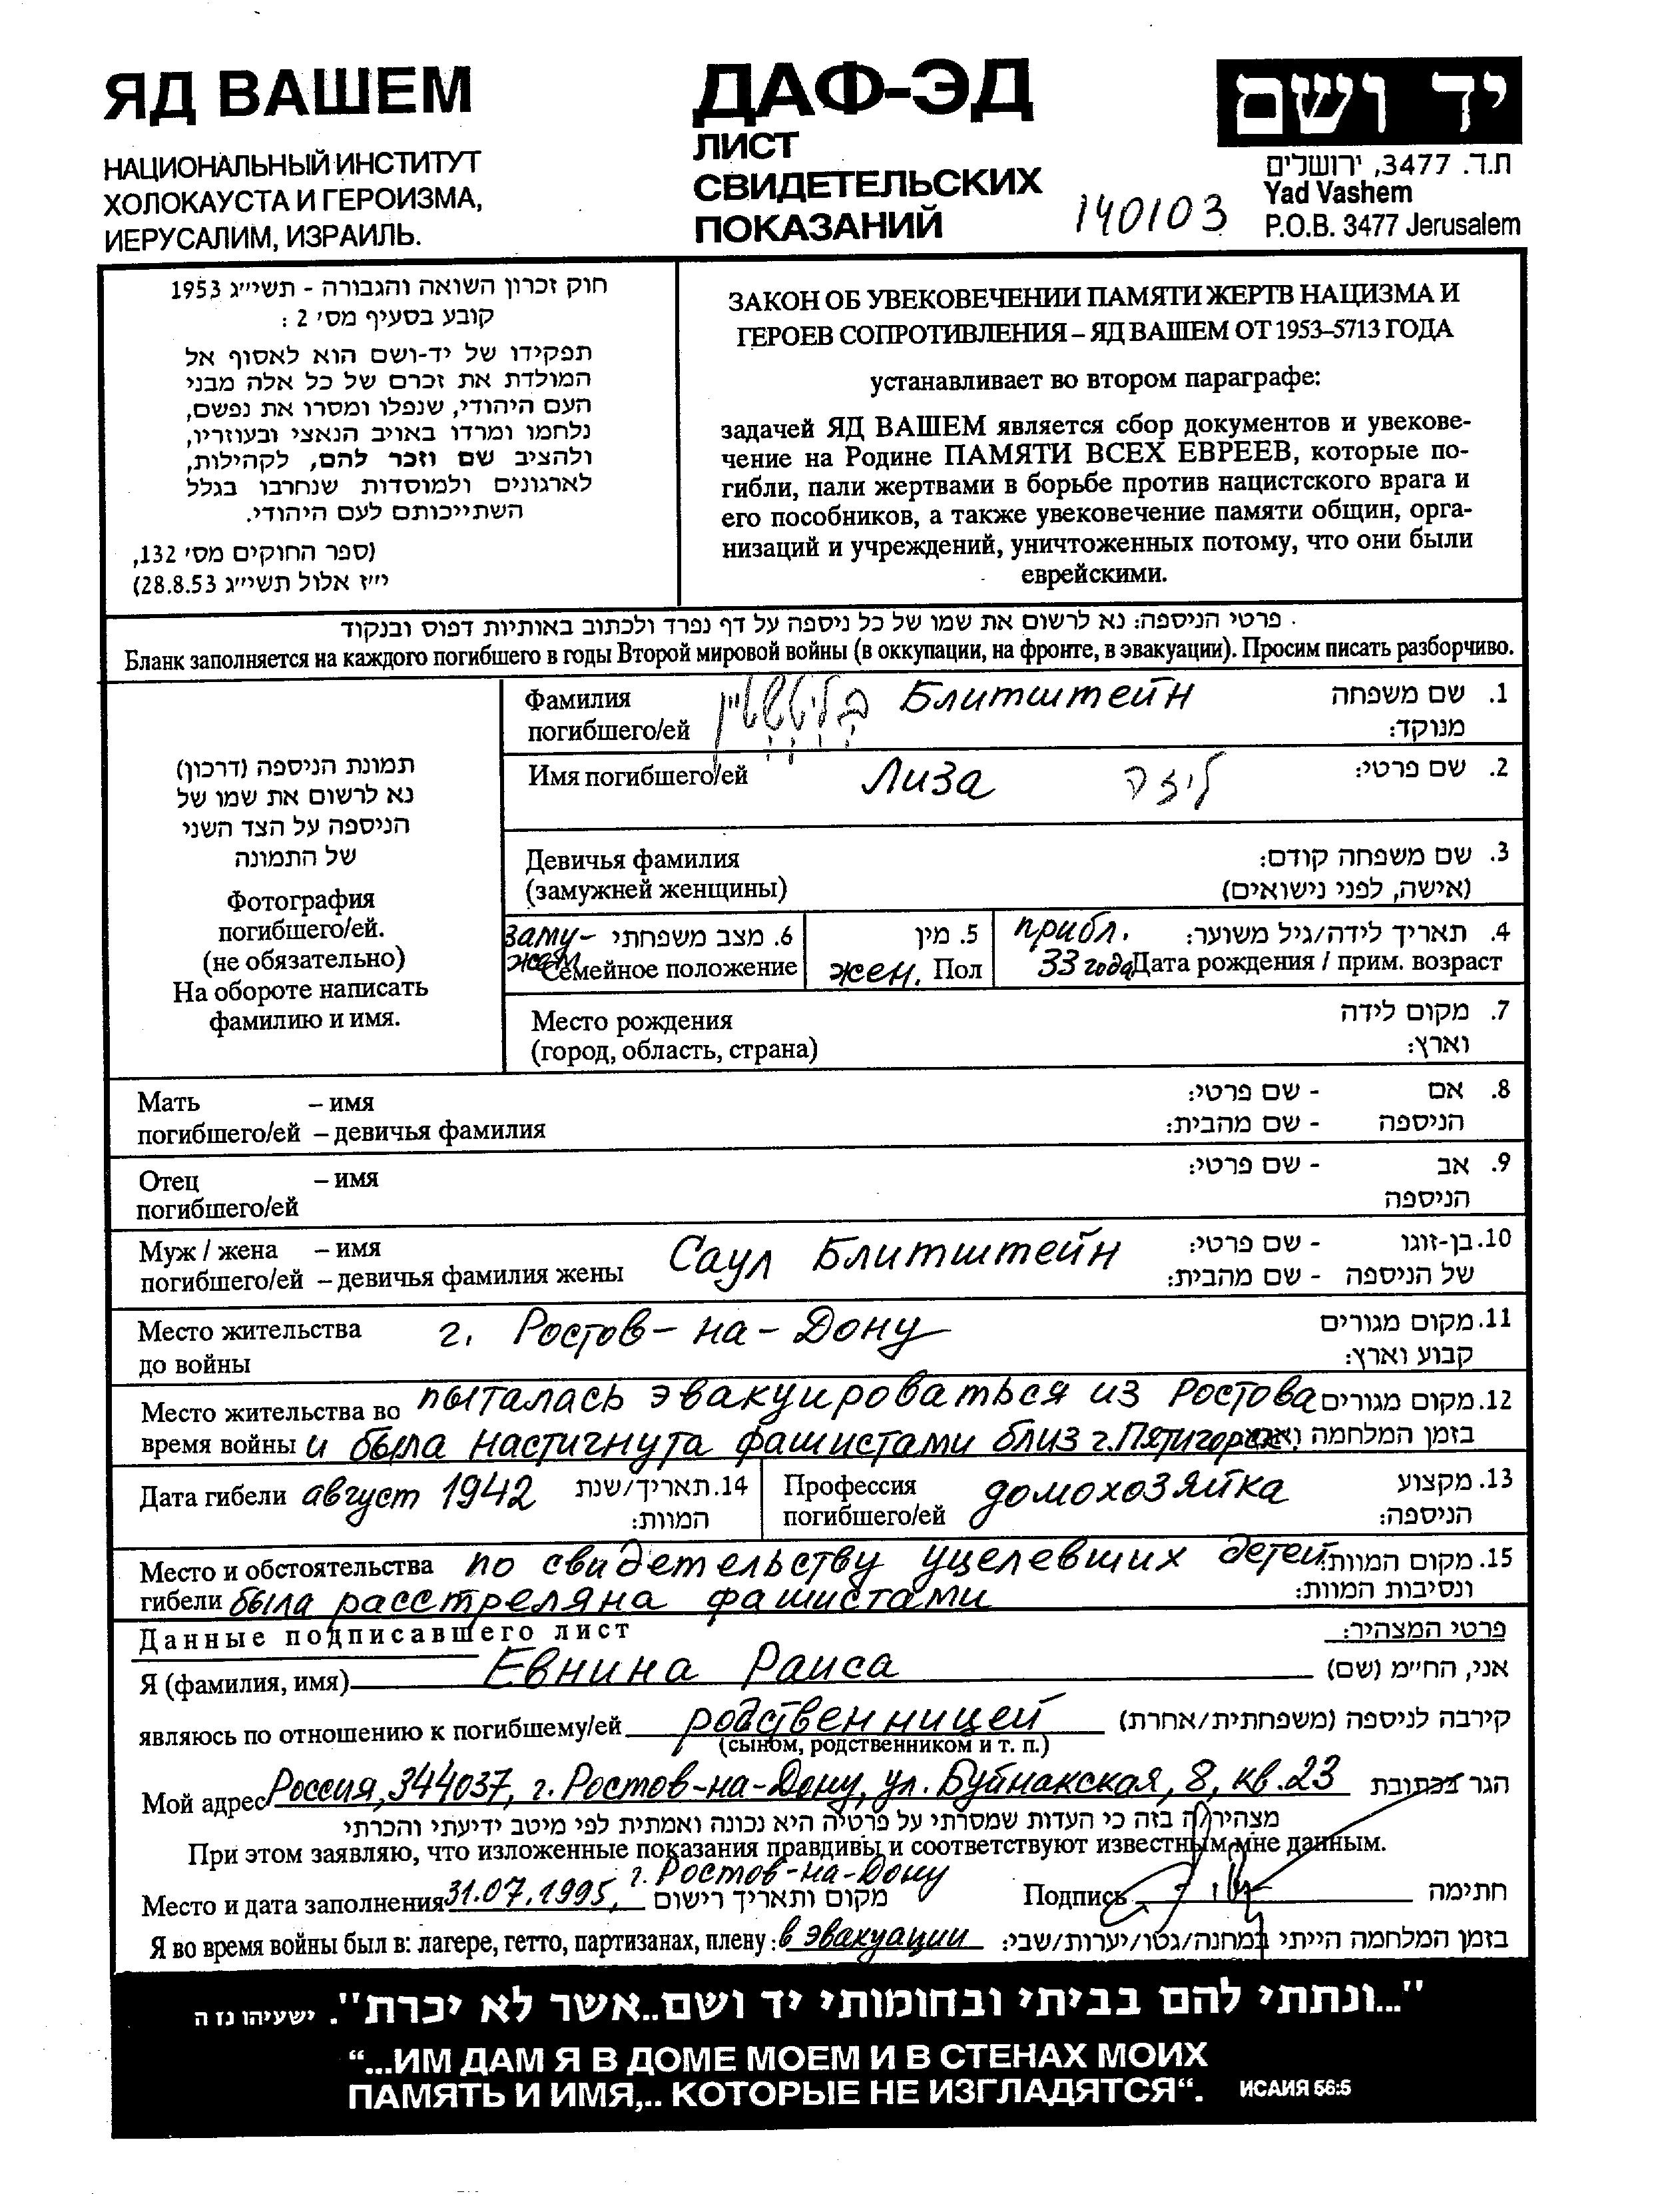 ЯД ВАШЕМ
НАЦИОНАЛЬНЫЙ ИНСТИТУТ
ХОЛОКАУСТА И ГЕРОИЗМА,
ИЕРУСАЛИМ, ИЗРАИЛЬ.
ДАФ-ЭД
ЛИСТ
СВИДЕТЕЛЬСКИХ
ПОКАЗАНИЙ
140103
יד ושם
ת.ד. 3477, ירושלים
Yad Vashem
P.O.B. 3477 Jerusalem
חוק זכרון השואה והגבורה - תשי״ג 1953
קובע בסעיף מס׳ 2 :
תפקידו של יד-ושם הוא לאסוף אל
המולדת את זכרם של כל אלה מבני
העם היהודי, שנפלו ומסרו את נפשם,
נלחמו ומרדו באויב הנאצי ובעוזריו,
ולהציב שם וזכר להם, לקהילות,
לארגונים ולמוסדות שנחרבו בגלל
השתייכותם לעם היהודי.
(ספר החוקים מס׳ 132,
י״ז אלול תשי״ג 28.8.53)
ЗАКОН ОБ УВЕКОВЕЧЕНИИ ПАМЯТИ ЖЕРТВ НАЦИЗМА И
ГЕРОЕВ СОПРОТИВЛЕНИЯ – ЯД ВАШЕМ ОТ 1953–5713 ГОДА
устанавливает во втором параграфе:
задачей ЯД ВАШЕМ является сбор документов и увекове-
чение на Родине ПАМЯТИ ВСЕХ ЕВРЕЕВ, которые по-
гибли, пали жертвами в борьбе против нацистского врага и
его пособников, а также увековечение памяти общин, орга-
низаций и учреждений, уничтоженных потому, что они были
еврейскими.
פרטי הניספה: נא לרשום את שמו של כל ניספה על דף נפרד ולכתוב באותיות דפוס ובנקוד
Бланк заполняется на каждого погибшего в годы Второй мировой войны (в оккупации, на фронте, в эвакуации). Просим писать разборчиво.
תמונת הניספה (דרכון)
נא לרשום את שמו של
הניספה על הצד השני
של התמונה
Фотография
погибшего/ей.
(не обязательно)
На обороте написать
фамилию и имя.
Фамилия בליטשטיין Блитштейн 1. שם משפחה
погибшего/ей מנוקד:
Имя погибшего/ей Лиза ליזה 2. שם פרטי:
Девичья фамилия 3. שם משפחה קודם:
(замужней женщины) (אישה, לפני נישואים)
заму- 6. מצב משפחתי 5. מין прибл. 4. תאריך לידה/גיל משוער:
жем Семейное положение жен. Пол 33 года Дата рождения / прим. возраст
Место рождения 7. מקום לידה
(город, область, страна) וארץ:
Мать – имя - שם פרטי: 8. אם
погибшего/ей – девичья фамилия - שם מהבית: הניספה
Отец – имя - שם פרטי: 9. אב
погибшего/ей הניספה
Муж / жена – имя Саул Блитштейн - שם פרטי: 10. בן-זוגו
погибшего/ей – девичья фамилия жены - שם מהבית: של הניספה
Место жительства г. Ростов-на-Дону 11. מקום מגורים
до войны קבוע וארץ:
Место жительства во пыталась эвакуироваться из Ростова 12. מקום מגורים
время войны и была настигнута фашистами близ г. Пятигорск. בזמן המלחמה וארץ:
Дата гибели август 1942 14. תאריך/שנת המוות:
Профессия домохозяйка 13. מקצוע
погибшего/ей הניספה:
Место и обстоятельства по свидетельству уцелевших детей 15. מקום המוות
гибели была расстреляна фашистами ונסיבות המוות:
Данные подписавшего лист פרטי המצהיר:
Я (фамилия, имя) Евнина Раиса אני, הח״מ (שם)
являюсь по отношению к погибшему/ей родственницей קירבה לניספה (משפחתית/אחרת)
(сыном, родственником и т. п.)
Мой адрес Россия, 344037, г. Ростов-на-Дону, ул. Буйнакская, 8, кв. 23 הגר בכתובת
מצהיר/ה בזה כי העדות שמסרתי על פרטיה היא נכונה ואמתית לפי מיטב ידיעתי והכרתי
При этом заявляю, что изложенные показания правдивы и соответствуют известным мне данным.
Место и дата заполнения 31.07.1995, г. Ростов-на-Дону מקום ותאריך רישום Подпись חתימה
Я во время войны был в: лагере, гетто, партизанах, плену: в эвакуации בזמן המלחמה הייתי במחנה/גטו/יערות/שבי:
"...ונתתי להם בביתי ובחומותי יד ושם..אשר לא יכרת". ישעיהו נז ה
“...ИМ ДАМ Я В ДОМЕ МОЕМ И В СТЕНАХ МОИХ
ПАМЯТЬ И ИМЯ,.. КОТОРЫЕ НЕ ИЗГЛАДЯТСЯ“. ИСАИЯ 56:5